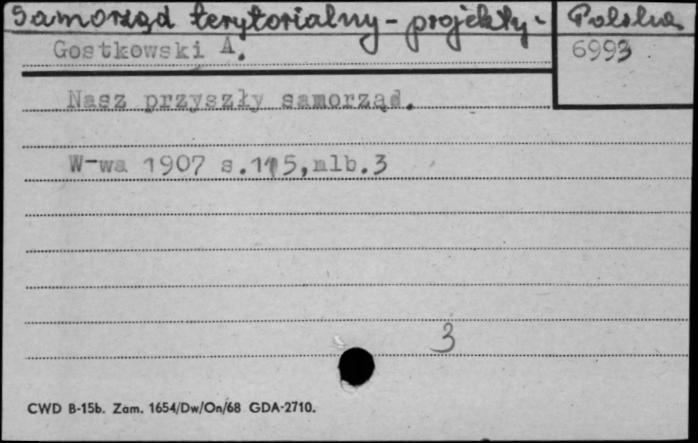 Samorząd terytorialny - projekty - Polska
Gostkowski A.
6993
Nasz przyszły samorząd.
W-wa 1907 s.115,nlb.3
3
CWD B-15b. Zam. 1654/Dw/On/68 GDA-2710.